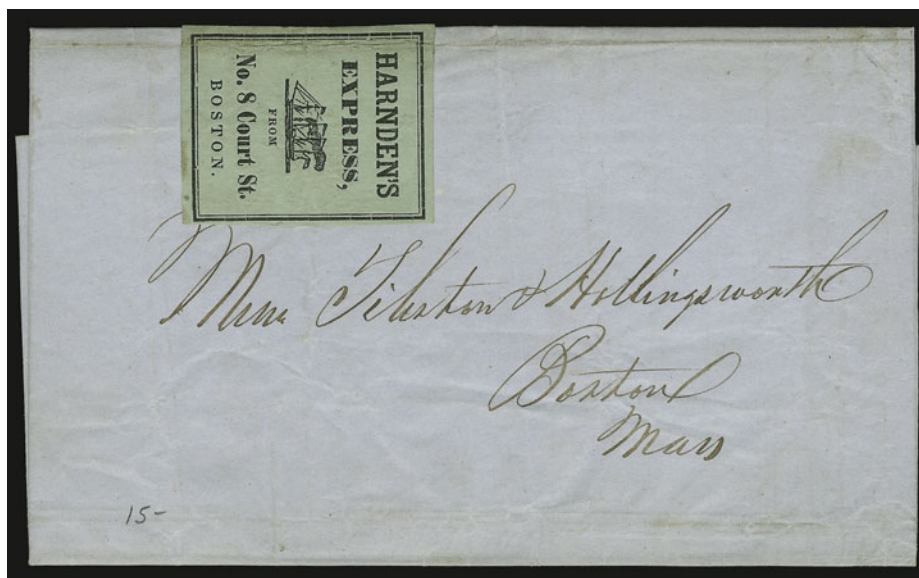 HARNDEN'S
EXPRESS,
FROM
No. 8 Court St.
BOSTON.
Messrs Tileston & Hollingsworth
Boston
Mass
15-